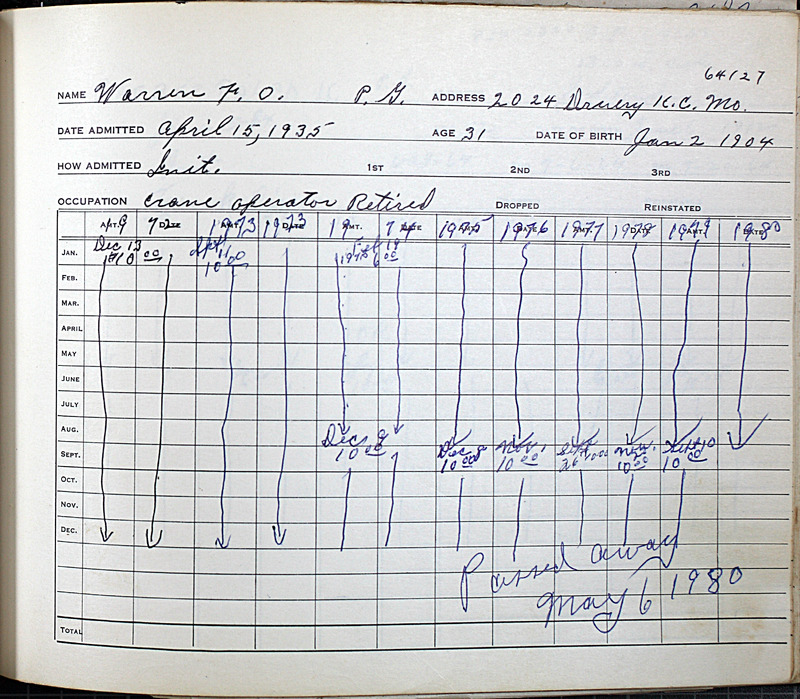 64127
NAME Warren F. O. P. G. ADDRESS 2024 Drury K.C. Mo.
DATE ADMITTED April 15, 1935 AGE 31 DATE OF BIRTH Jan 2 1904
HOW ADMITTED Init. 1ST 2ND 3RD
OCCUPATION Crane operator Retired DROPPED REINSTATED
AMT. DATE 1973 1973 19 74 1975 1976 1977 1978 1979 1980
JAN. Dec 13 10 00 10 00 6 00
FEB.
MAR.
APRIL
MAY
JUNE
JULY
AUG.
Dec 9 Dec 9 Nov. 1 Sept Nov. Sept 10
SEPT. 10 00 10 00 10 00 26 10 00 10 00 10 00
OCT.
NOV.
DEC.
Passed away
May 6 1980
TOTAL